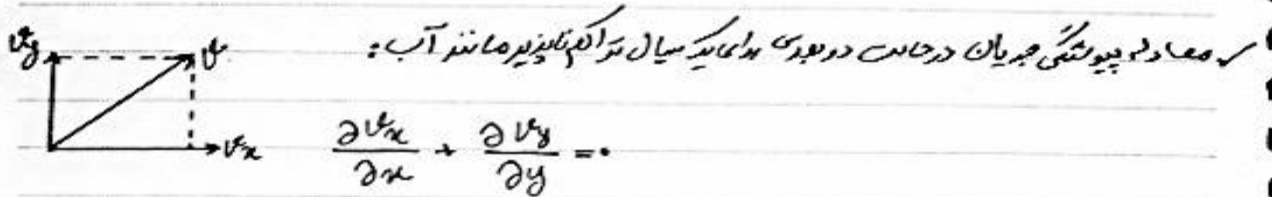 معادله پیوستگی جریان در حالت دو بعدی برای یک سیال تراکم ناپذیر مانند آب:
vy
v
vx
∂vx/∂x + ∂vy/∂y = ۰